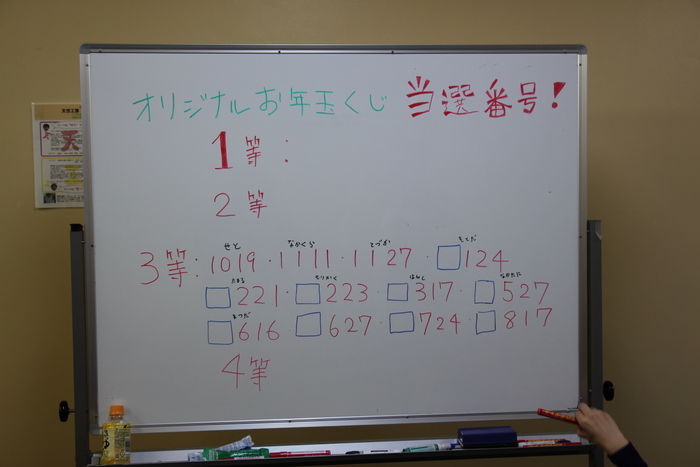 オリジナルお年玉くじ 当選番号!
1等:
2等
せと なかくら とづか もてだ
3等:1019・1111・1127・□124
たまる もりわく はらと なかたに
□221・□223・□317・□527
まつだ
□616・□627・□724・□817
4等
天